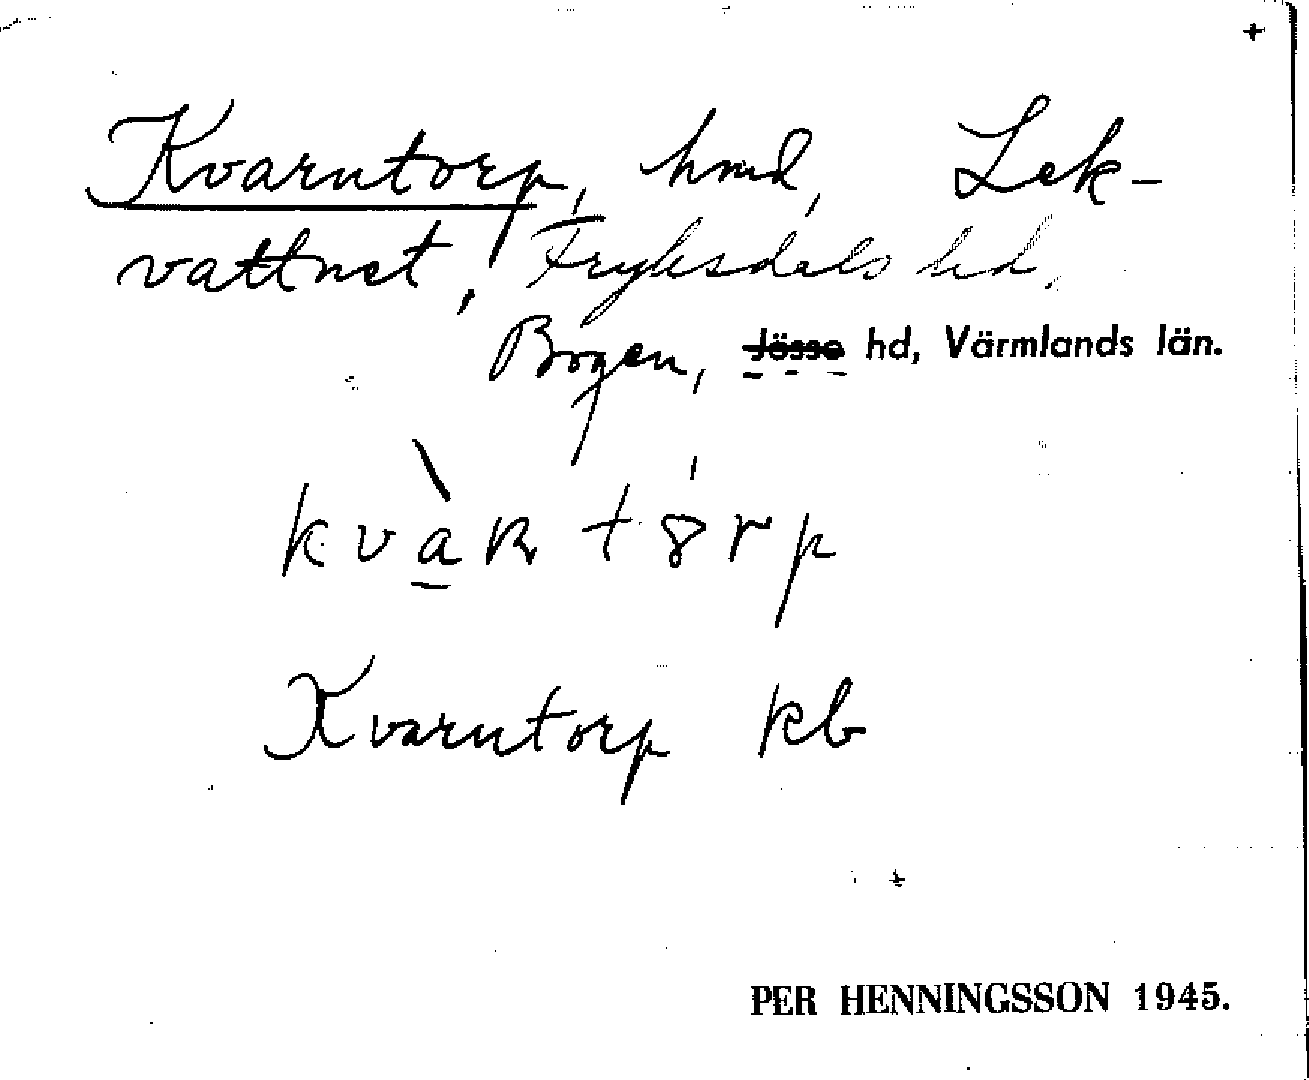 Kvarntorp, hmd, Lek-
vattnet, Fryksdals hd,
Bogen, Jösse hd, Värmlands län.
Kvarntorp kb
PER HENNINGSSON 1945.